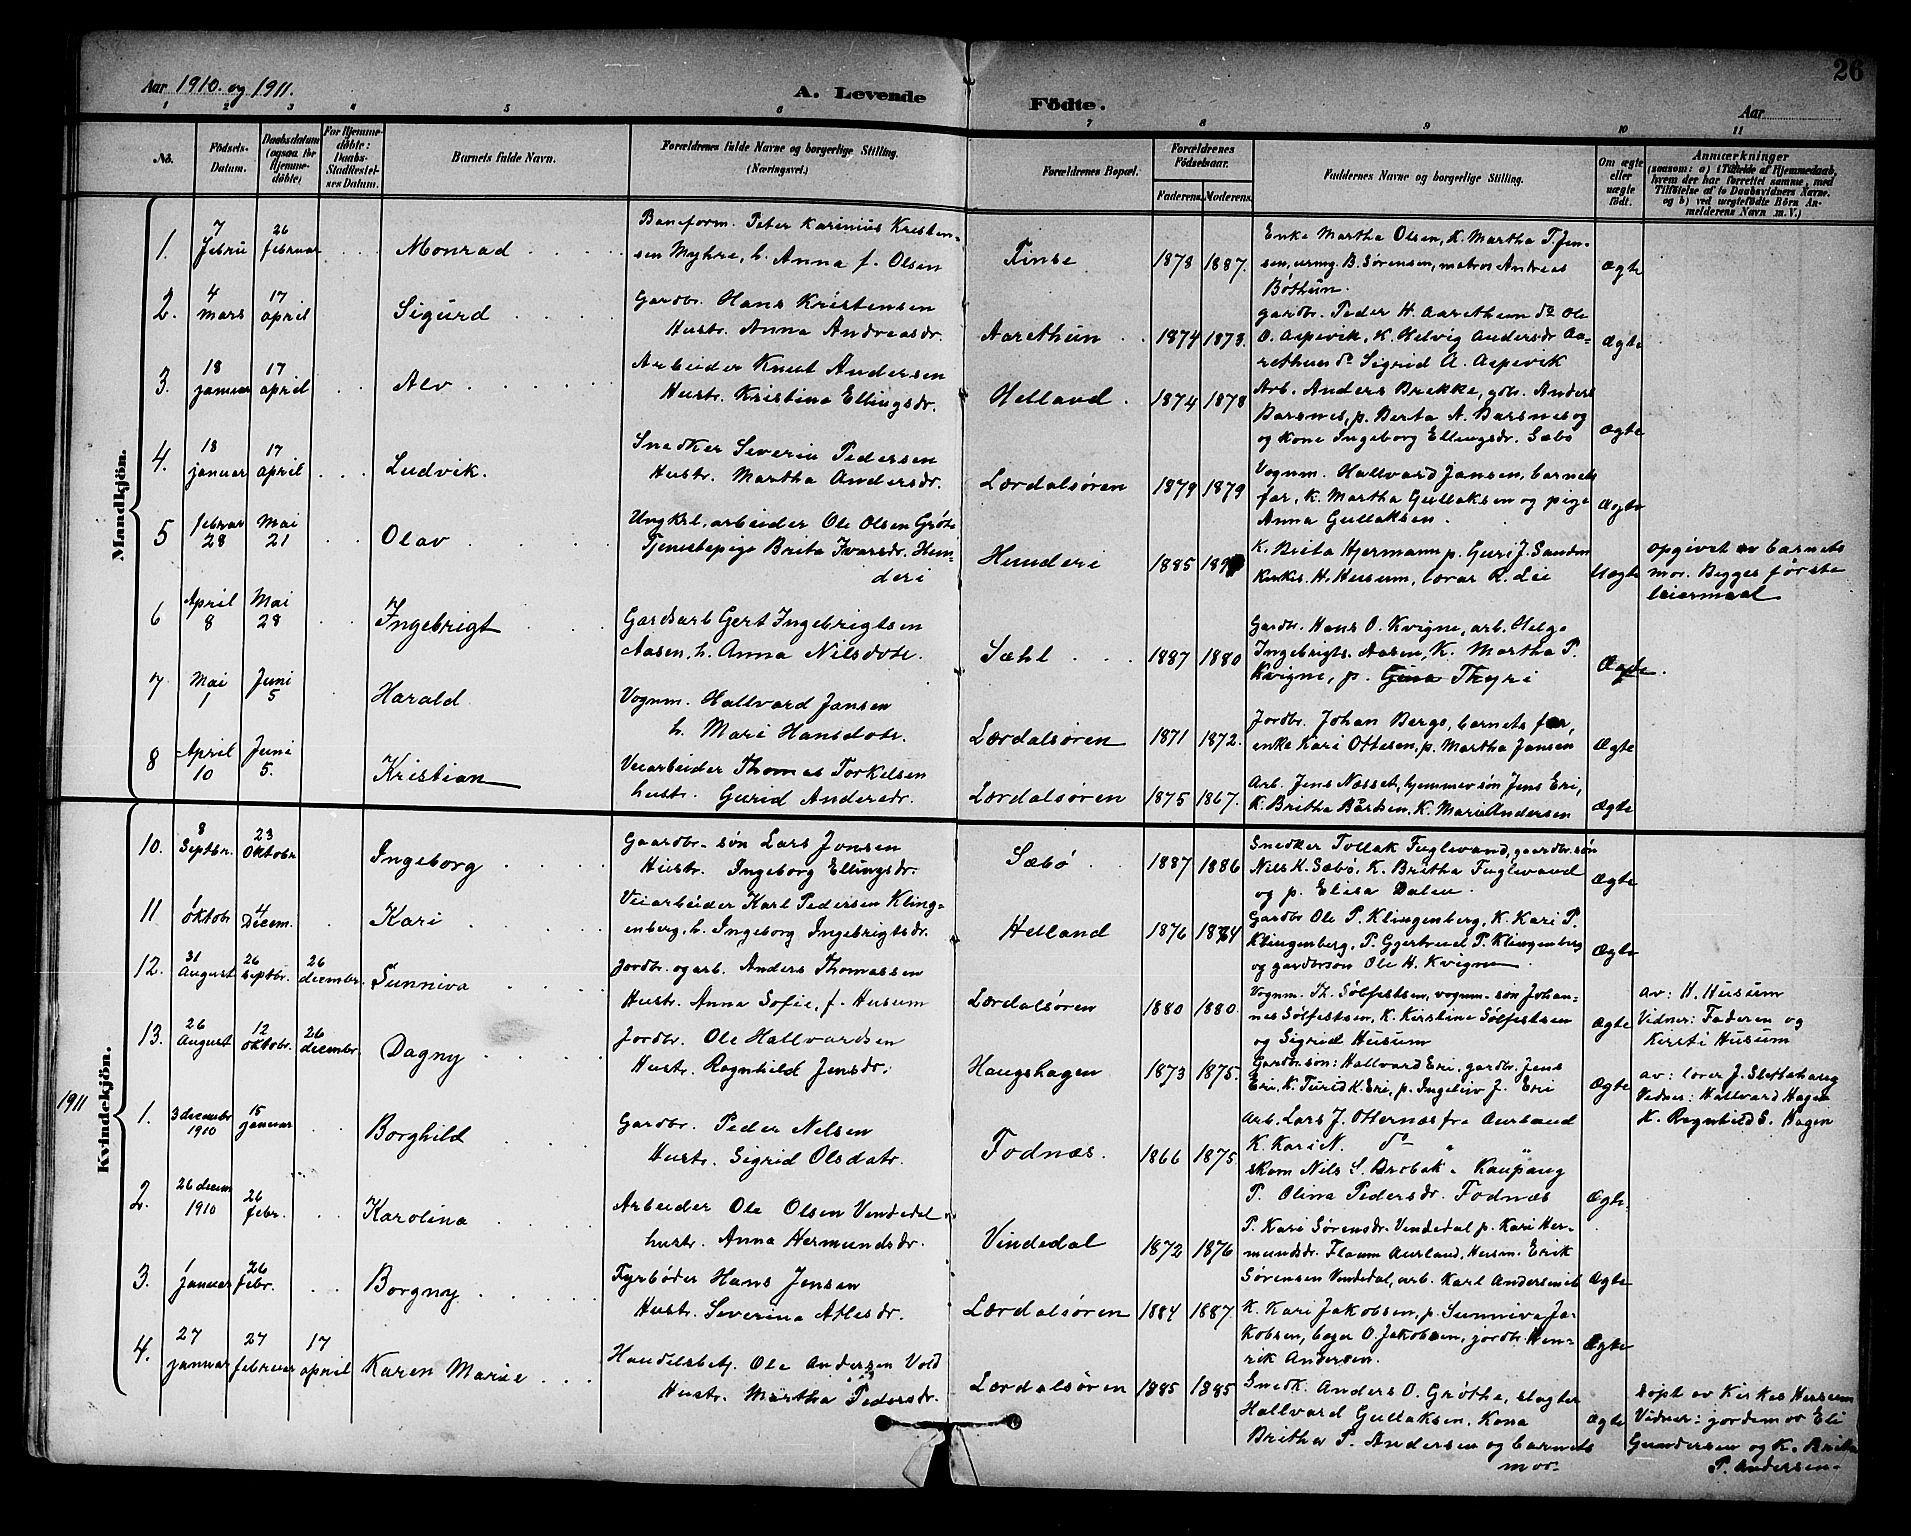 26
Aar 1910. og 1911.
A. Levende Födte.
Aar
1 2 3 4 5 6 7 8 9 10 11
No.
Födsels-Datum.
Daabsdatum (ogsaa for Hjemme-döbte)
For Hjemme-döbte: Daabs-Stadfæstel-ses Datum.
Barnets fulde Navn.
Forældrenes fulde Navne og borgerlige Stilling. (Næringsvei.)
Forældrenes Bopæl.
Forældrenes Födselsaar.
Faderens. Moderens.
Faddernes Navne og borgerlige Stilling.
Om ægte eller uægte født.
Anmærkninger
(saasom: a) i Tilfælde af Hjemmedaab,
hvem der har forrettet samme, med
Tilföielse af to Daabsvidners Navne.
og b) ved uægtefödte Börn An-
melderens Navn m. V.)
Mandkjön.
1. 7 Febru 26 februar Monrad
Baneform. Peter Karinius Kristen-
sen Myhre, h. Anna f. Olsen
Finse 1878 1887.
Enke Martha Olsen, K. Martha T. Jen-
sen, urmg. B. Sørensen, matros Andreas
Böthun.
Ægte
2. 4 mars 17 april Sigurd
Gardbr. Hans Kristensen
Hustr. Anna Andreasdr.
Aarethun 1874 1873.
gardbr. Peder H. Aarethun do Ole
O. Aspevik, K. Helvig Andersdr Aa-
rethun do Sigrid A. Aspevik
Ægte
3. 18 januar 17 april Alv
Arbeider Knut Andersen
Hustr. Kristina Ellingsdr.
Helland 1874 1878
Arb. Anders Brekke, gbr. Anders
Barsnes, p. Berta A. Barsnes og
og Kone Ingeborg Ellingsdr. Sæbö
Ægte
4. 18 januar 17 april Ludvik.
Snedker Severin Pedersen
Hustr. Martha Andersdr.
Lærdalsøren 1879 1879
Vognm. Hallvard Jansen, barnets
far, K. Martha Gullaksen og pige
Anna Gullaksen.
Ægte
5 februar 28 Mai 21 Olav
Ungkrl, arbeider Ole Olsen Grøte
Tjenestepige Brita Ivarsdr. Hun-
deri
Hunderi 1885
K. Brita Hjermann p. Guri J. Sandm
Kirkes. H. Husum, lærer R. Lie
Uægte
opgivet av barnets
mor. Begges første
leiermaal
6 April 8 Mai 28 Ingebrigt
Gardsarb Gert Ingebrigtsen
Aasen, h. Anna Nilsdotr.
Sæhl 1887 1880
Gardbr. Hans O. Kvigne, arb. Helge
Ingebrigts. Aasen, K. Martha P.
Kvigne, p. Thyri
Ægte.
7 Mai 1 Juni 5 Harald
Vognm. Hallvard Jansen
h. Mari Hansdotr.
Lærdalsøren 1871 1872.
Jordbr. Johan Berge, barnets far,
enke Kari Ottesen, p. Martha Jansen
Ægte
8 April 10 Juni 5. Kristian
Veiarbeider Thomas Torkelsen
hustr. Gurid Andersdr.
Lærdalsøren 1875 1867.
Arb. Jens Næsset, hjemmev. søn Jens Eri,
K. Britha Bårdsen, K. Mari Andersen
Ægte
Kvindekjön.
10. 8 Septbr. 23 Oktobr Ingeborg
Gaardbr. søn Lars Jonsen
Hustr. Ingeborg Ellingsdr.
Sæbö 1887 1886
Snedker Tollak Fuglevand, gaardbr. søn
Nils K. Sæbø, K. Britha Fuglevand
og p. Elisa Dalen.
Ægte
11 1 oktobr 4 Decem. Kari
Veiarbeider Karl Pedersen Kling-
enberg, h. Ingeborg Ingebrigtsdr.
Helland 1876
Gardbr Ole P. Klingenberg, K. Kari P.
Klingenberg, P. Ggertrud P. Klingenberg
og gardbrsøn Ole H. Kvigne.
Ægte
12. 31 August 26 septbr. 26 decembr. Sunniva
Jordbr. og arb. Anders Thomassen
Hustr. Anna Sofie, f. Husum
Lærdalsøren 1880 1880.
Vognm. Th. Sølfestsen, vognm. søn Johan-
nes Sölfestsen, K. Kirstine Sølfestsen
og Sigrid Husum
Ægte
av: H. Husum
Vidner: Faderen og
Kersti Husum
13. 26 August 12 oktobr. 26 decembr. Dagny
Jordbr. Ole Hallvardsen
Hustr. Ragnhild Jensdr.
Haugshagen 1873 1875.
Gardbr.søn: Hallvard Eri, gardbr. Jens
Eri, K. Turid K. Eri, p. Ingeliv J. Eri
Ægte
av: lærer J. Slettehaug
Vidner: Hallvard Hagen
K. Ragnhild S. Hagen
1911
1. 3 decembr 1910 15 januar Borghild
Gardbr. Peder Nelsen
Hustr. Sigrid Olsdatr.
Fodnæs. 1866 1875
Arb. Lars J. Otternæs fra Aurland
K. Kari N. do "
skom Nils S. Brobak " Kaupang
P. Olina Pedersdr. Fodnæs
Ægte.
2. 26 decem 1910 26 febr. Karolina
Arbeider Ole Olsen Vendedal
hustr. Anna Hermundsdr.
Vindedal 1872 1876
P. Kari Sørensdr. Vendedal p. Kari Her-
mundsdr. Flaam Aurland, Husm. Erik
Sørensen Vendedal, arb. Karl Andersen ib
Ægte
3. 1 januar 26 febr. Borgny
Fyrbøder Hans Jensen
Hustr. Severina Atlesdr.
Lærdalsøren 1884 1887.
K. Kari Jakobsen, p. Sunniva Ja-
kobsen, bager O. Jakobsen, jordbr. Hen-
rik Andersen.
Ægte
4. 27 januar 27 februar 17 april Karen Marie
Handelsbetj. Ole Andersen Vold
Hustr. Martha Pedersdr.
Lærdalsøren 1885 1885
Snedk. Anders O. Grøthe, slagter
Hallvard Gullaksen, Kona
Britha P. Andersen og barnets
mor.
Ægte
døpt av Kirkes Husum
Vidner: jordemor Eli
Gundersen og K. Britha
P. Andersen.